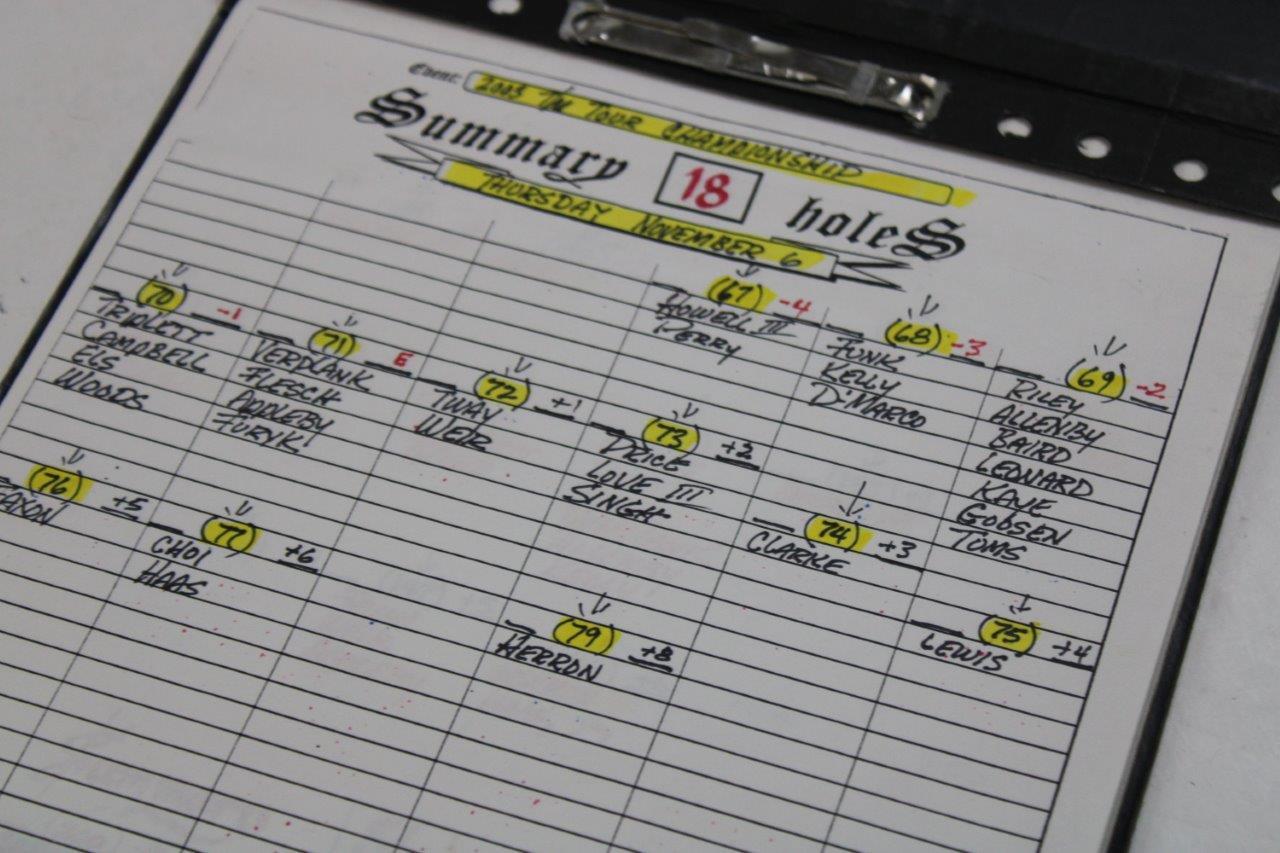 Event: 2003 The Tour Championship
Summary 18 holeS
Thursday November 6
(67) -4
HOWELL III
PERRY
(68) -3
FUNK
KELLY
D'MARCO
(69) -2
RILEY
ALLENBY
BAIRD
LEONARD
KANE
GOOSEN
TOMS
(70) -1
TRIPLETT
CAMPBELL
ELS
WOODS
(71) E
VERPLANK
FLESCH
APPLEBY
FURYK
(72) +1
TWAY
WEIR
(73) +2
PRICE
LOVE III
SINGH
(74) +3
CLARKE
(75) +4
LEWIS
(76) +5
FAXON
(77) +6
CHOI
HAAS
(79) +8
HERRON